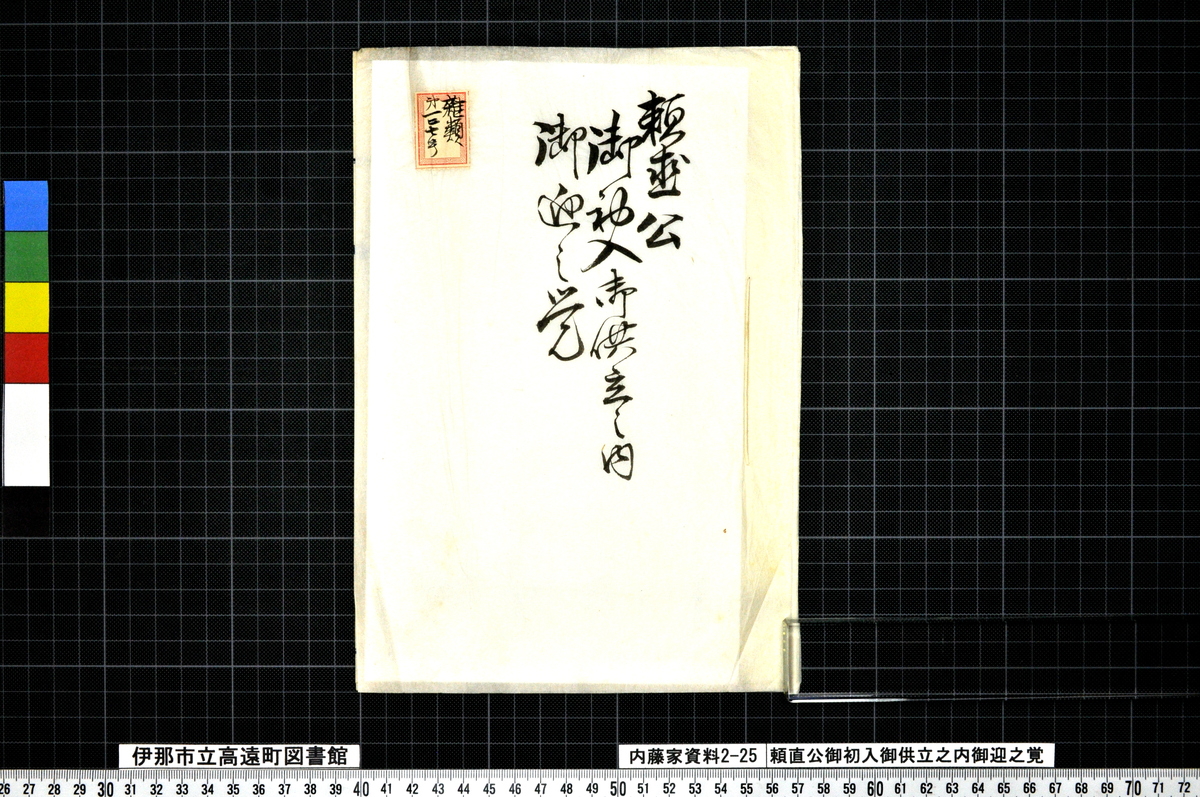 頼直公
御初入御供立之内
御迎之覚
雑類
第一〇七号
伊那市立高遠町図書館
内藤家資料2−25
頼直公御初入御供立之内御迎之覚
26 27 28 29 30 31 32 33 34 35 36 37 38 39 40 41 42 43 44 45 46 47 48 49 50 51 52 53 54 55 56 57 58 59 60 61 62 63 64 65 66 67 68 69 70 71 72